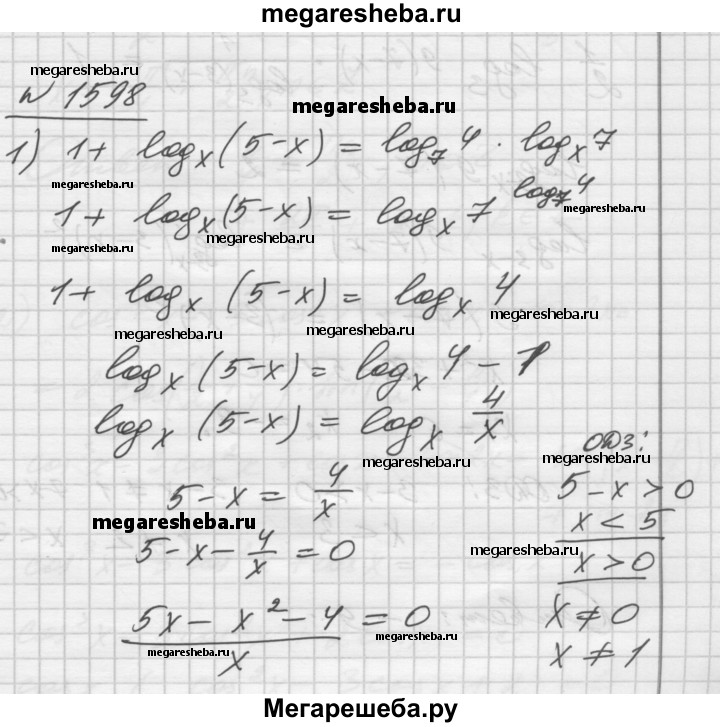 megaresheba.ru
megaresheba.ru
№ 1598
megaresheba.ru
1) 1 + log_x (5 - x) = log_7 4 · log_x 7
megaresheba.ru
1 + log_x (5 - x) = log_x 7^(log_7 4)
megaresheba.ru
megaresheba.ru
megaresheba.ru
1 + log_x (5 - x) = log_x 4
megaresheba.ru
megaresheba.ru
megaresheba.ru
log_x (5 - x) = log_x 4 - 1
log_x (5 - x) = log_x 4/x
megaresheba.ru
5 - x = 4/x
megaresheba.ru
5 - x - 4/x = 0
(5x - x² - 4)/x = 0
megaresheba.ru
megaresheba.ru
ОДЗ:
megaresheba.ru
5 - x > 0
x < 5
megaresheba.ru
x > 0
x ≠ 0
x ≠ 1
Мегарешеба.ру